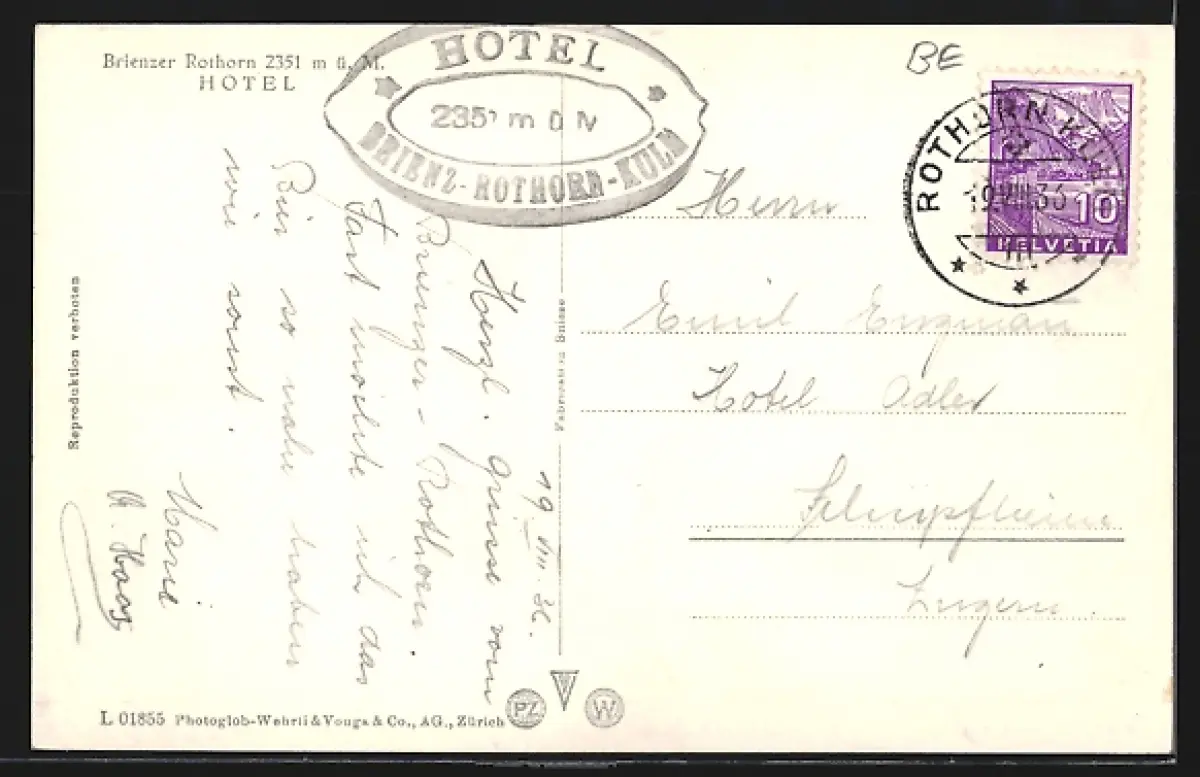 Brienzer Rothorn 2351 m ü. M.
HOTEL
HOTEL
2351 m ü M
BRIENZ-ROTHORN-KULM
BE
ROTHORN-KULM
19.VIII.36
III
10
HELVETIA
19. VIII. 36.
Herzl. Grüsse vom
Brienzer-Rothorn.
Fast möchte ich das
Bier so nahe haben
wie sonst.
Marie
A. Haas
Herrn
Emil
Hotel Adler
Luzern.
Reproduktion verboten
Fabriqué en Suisse
L 01855 Photoglob-Wehrli & Vouga & Co., AG., Zürich
PZ
W